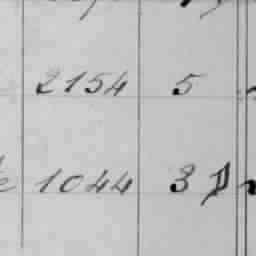 2154 5
1044 3